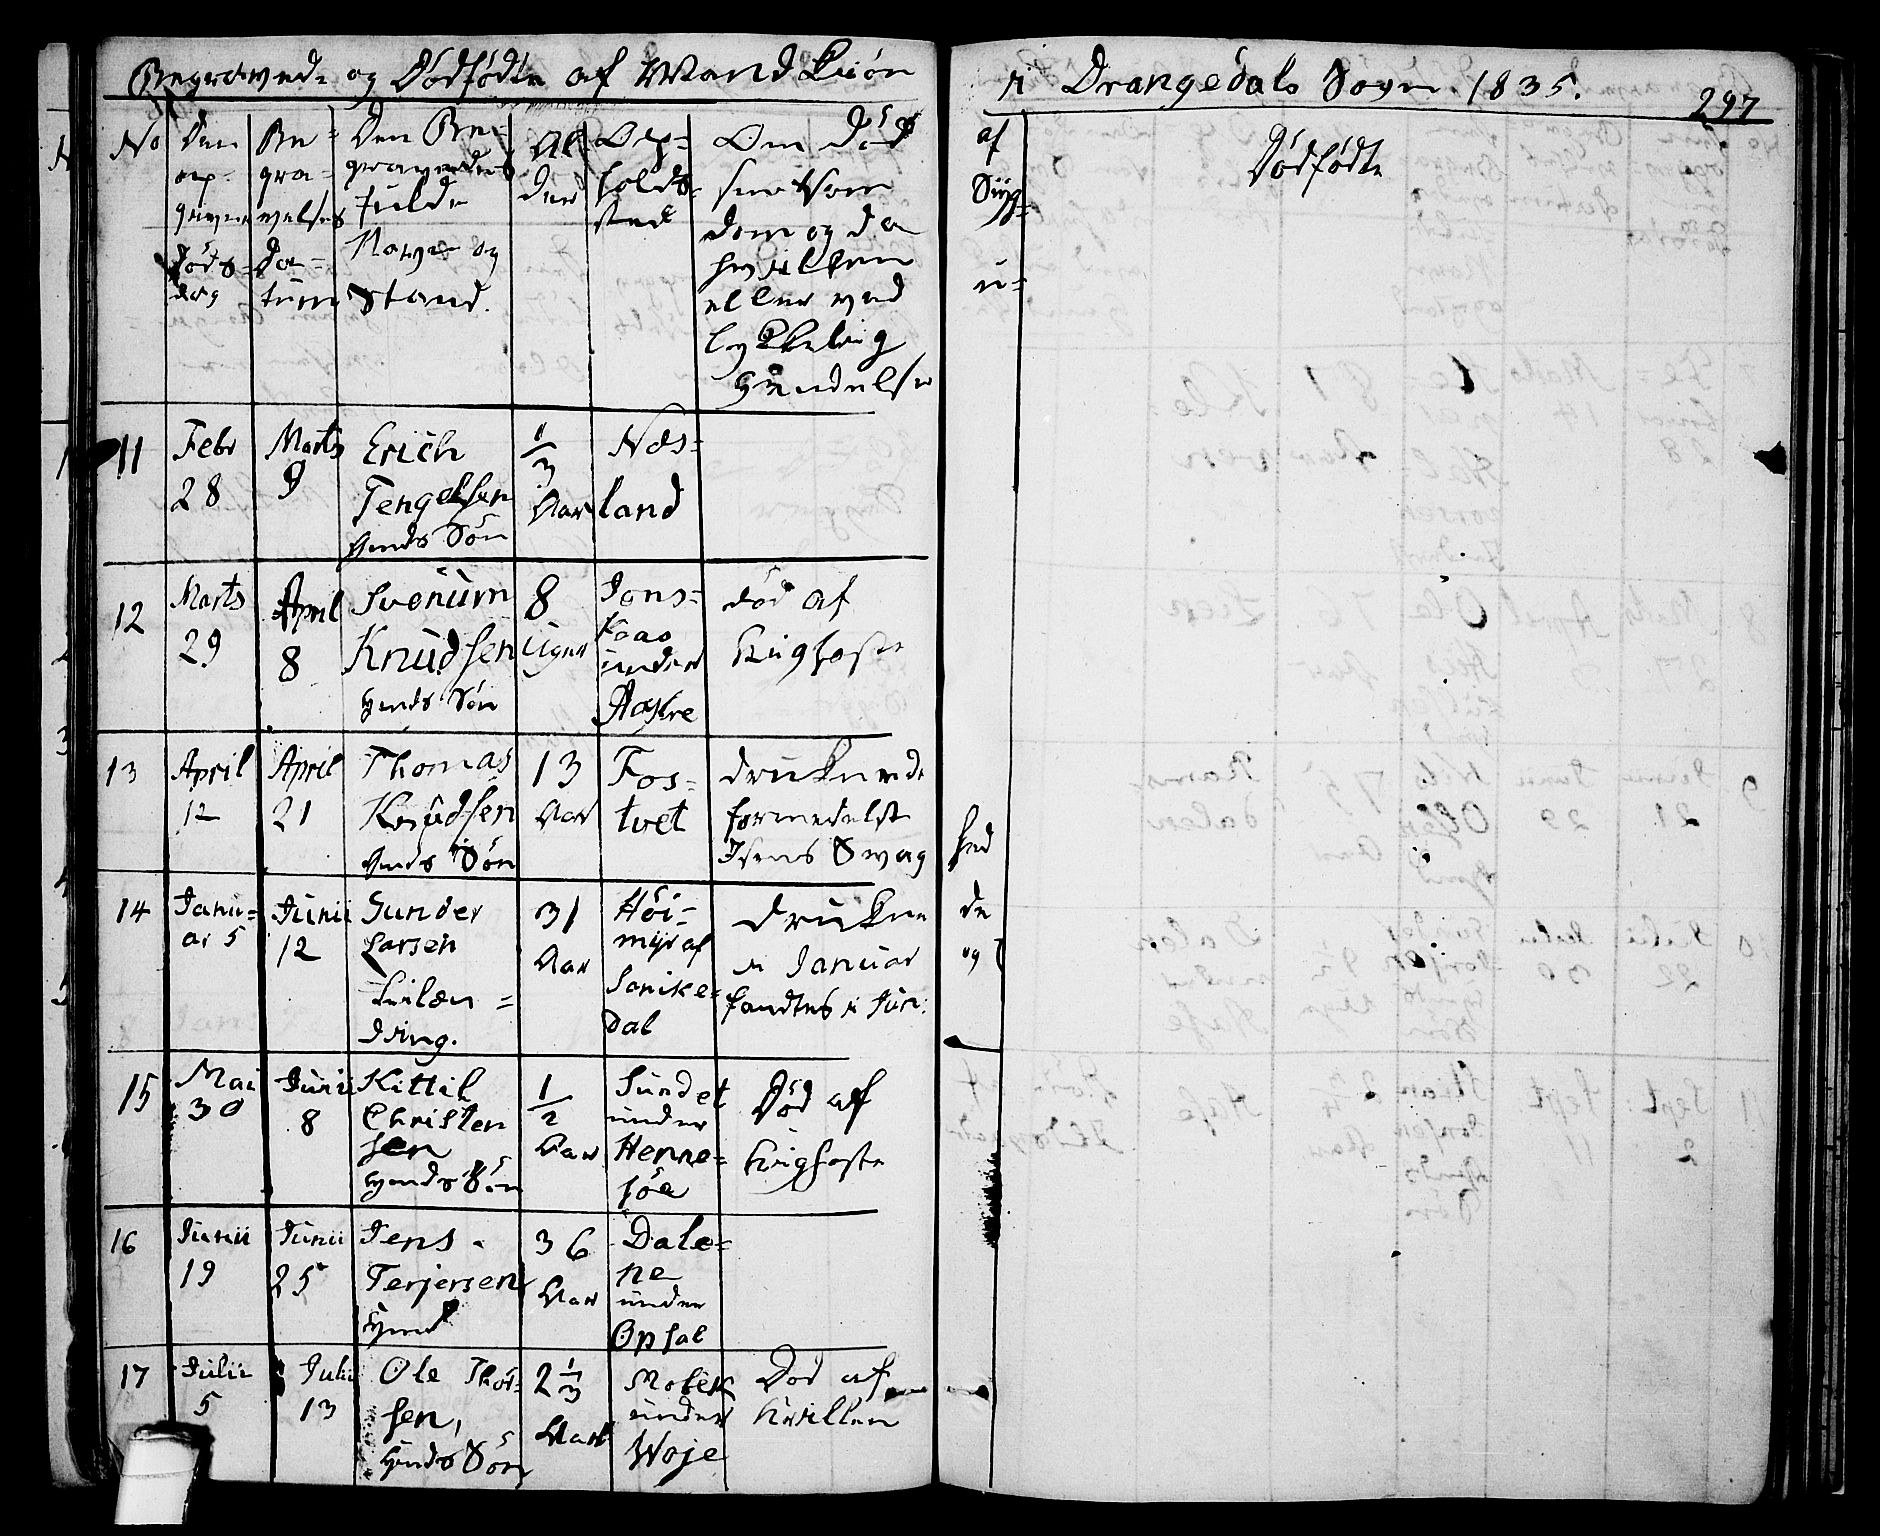 Begravede og Dödfödte af Mand Kiön
i Drangedals Sogn. 1835.
297
No
Den
op-
givne
Döds-
dag
Be-
gra-
velses
Da-
tum
Den Be-
gravedes
fulde
Navn og
Stand.
Al
der
Op-
holds-
sted
Om död
der
eller ved
Hendelse
af
Syg-
Dödfödte
11
Febr
28
Marts
9
Erich
Tengelsen
Gmds Sön
1/3
Aar
Næs-
land
12
Marts
29
April
8
Svenum
Knudsen
Hmds Sön
8
Uger
Jons-
kaas
under
död af
Kighoste
13
April
12
April
21
Thomas
Knudsen
Gmds Sön
13
Aar
Fos-
tvet
druknede
formedelst
Isens Svag
hed
14
Janu-
ar 5
Junii
12
Gunder
Larsen
dring.
31
Aar
Höi-
myr af
Sanike-
dal
Drukne
de
i Januar
og
fandtes i Jun:
15
Mai
30
Junii
8
Kittil
Christen
sen
Hmds Sön
1/2
Aar
Sundet
under
Henne-
söe
Död af
Kighoste
16
Junii
19
Junii
25
Jens
Terjersen
Hmd
36
Aar
Dale-
ne
under
Opsal
17
Julii
5
Juli
13
Ole Thor-
sen,
Hmds Sön
2 1/3
Aar
under
Woje
Död af